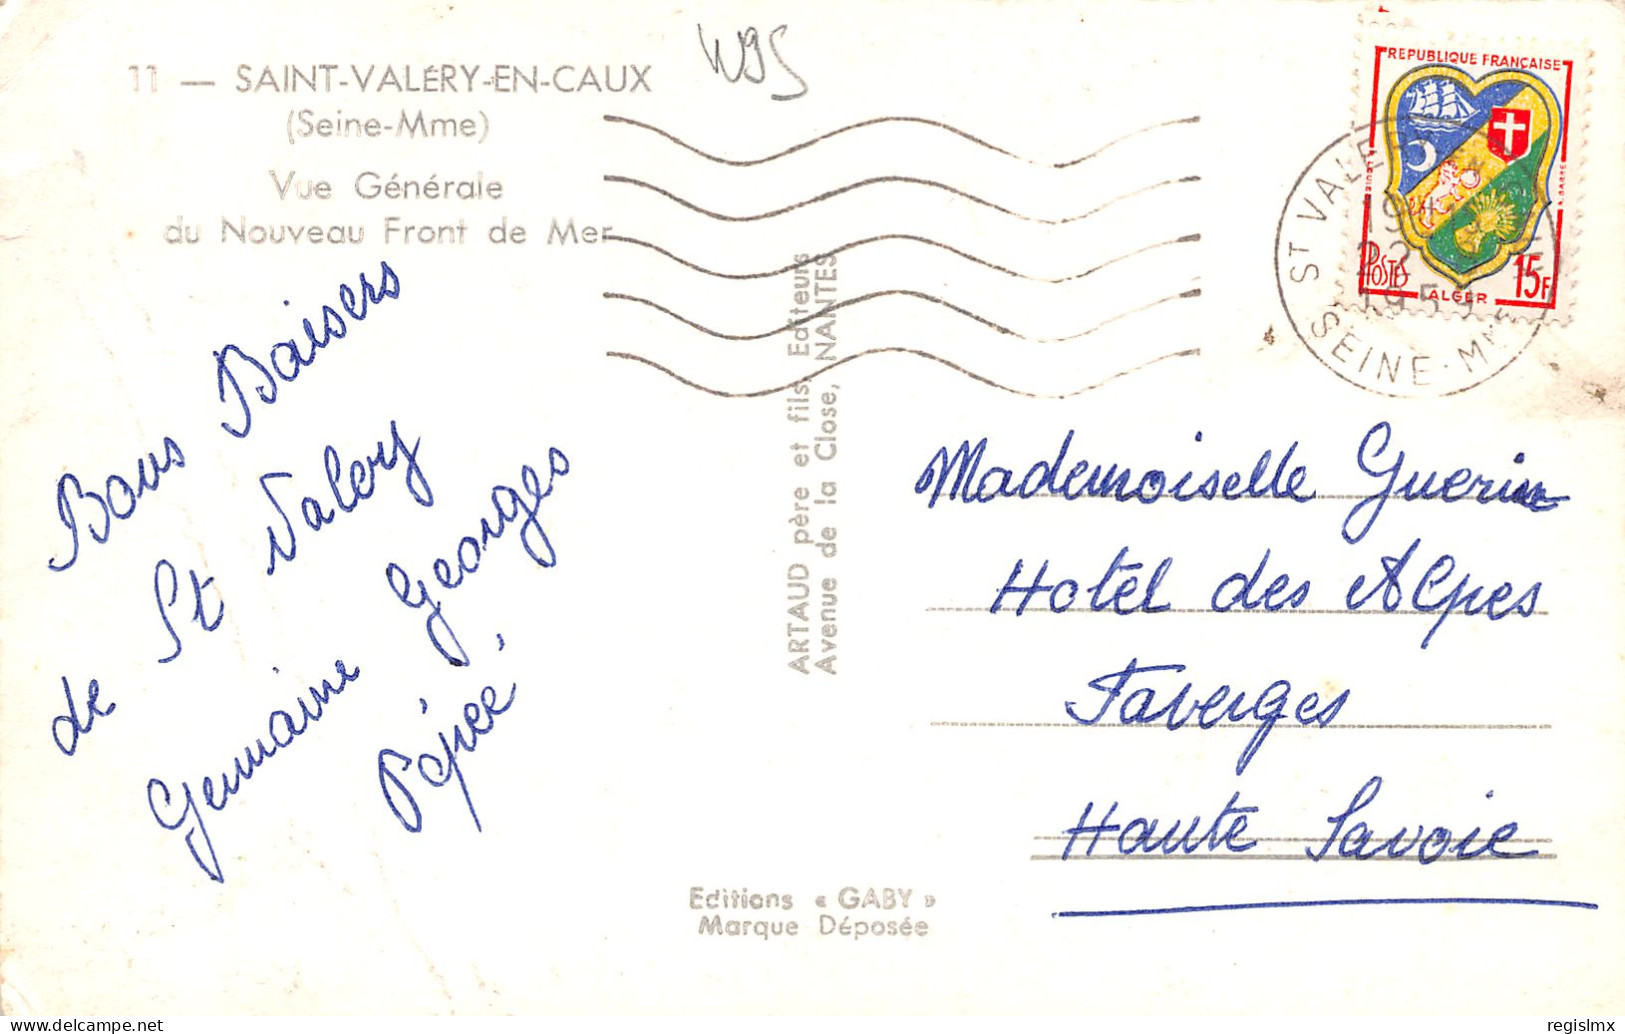 11 — SAINT-VALÉRY-EN-CAUX
(Seine-Mme)
Vue Générale
du Nouveau Front de Mer
REPUBLIQUE FRANÇAISE
POSTES
ALGER
15F
ST VALERY
SEINE-MME
Bons Baisers
de St Valery
Germaine Georges
Pépée
ARTAUD père et fils, Editeurs
Avenue de la Close, NANTES
Mademoiselle Guerin
Hotel des Alpes
Faverges
Haute Savoie
Editions « GABY »
Marque Déposée
regislmx